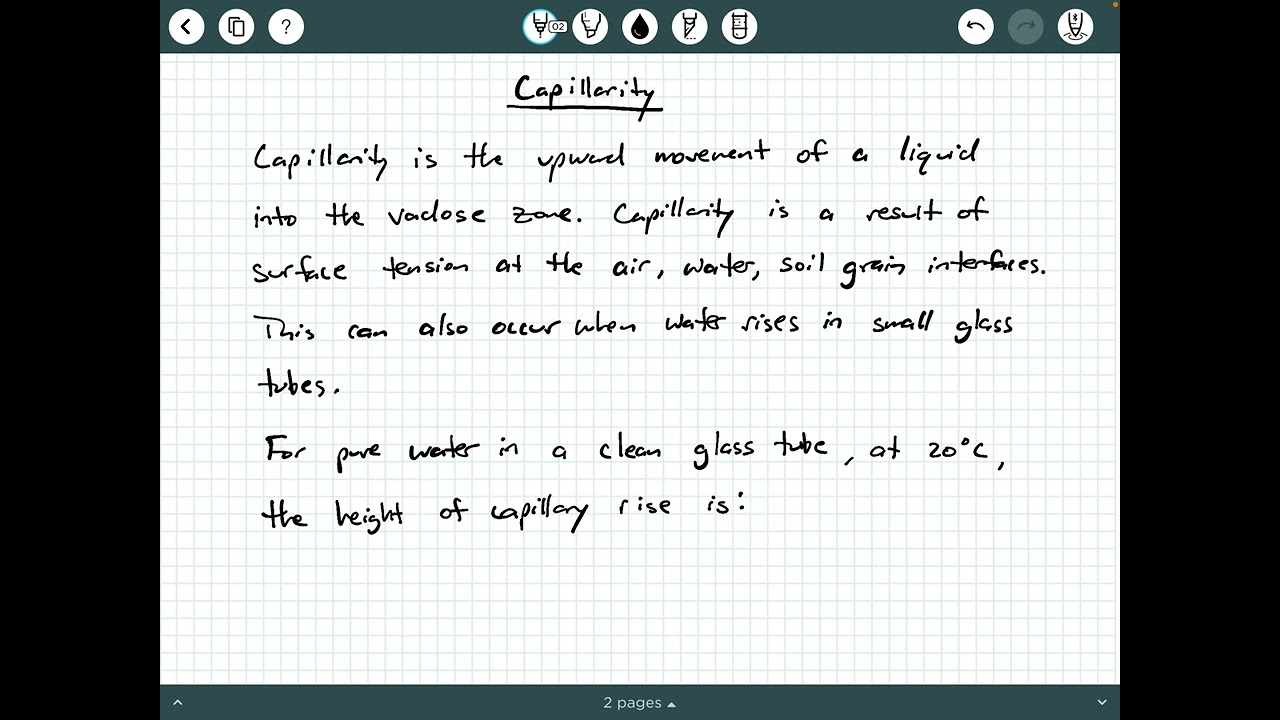 ?
02
Capillarity
Capillarity is the upward movement of a liquid
into the vadose zone. Capillarity is a result of
surface tension at the air, water, soil grain interfaces.
This can also occur when water rises in small glass
tubes.
For pure water in a clean glass tube, at 20°C,
the height of capillary rise is:
2 pages